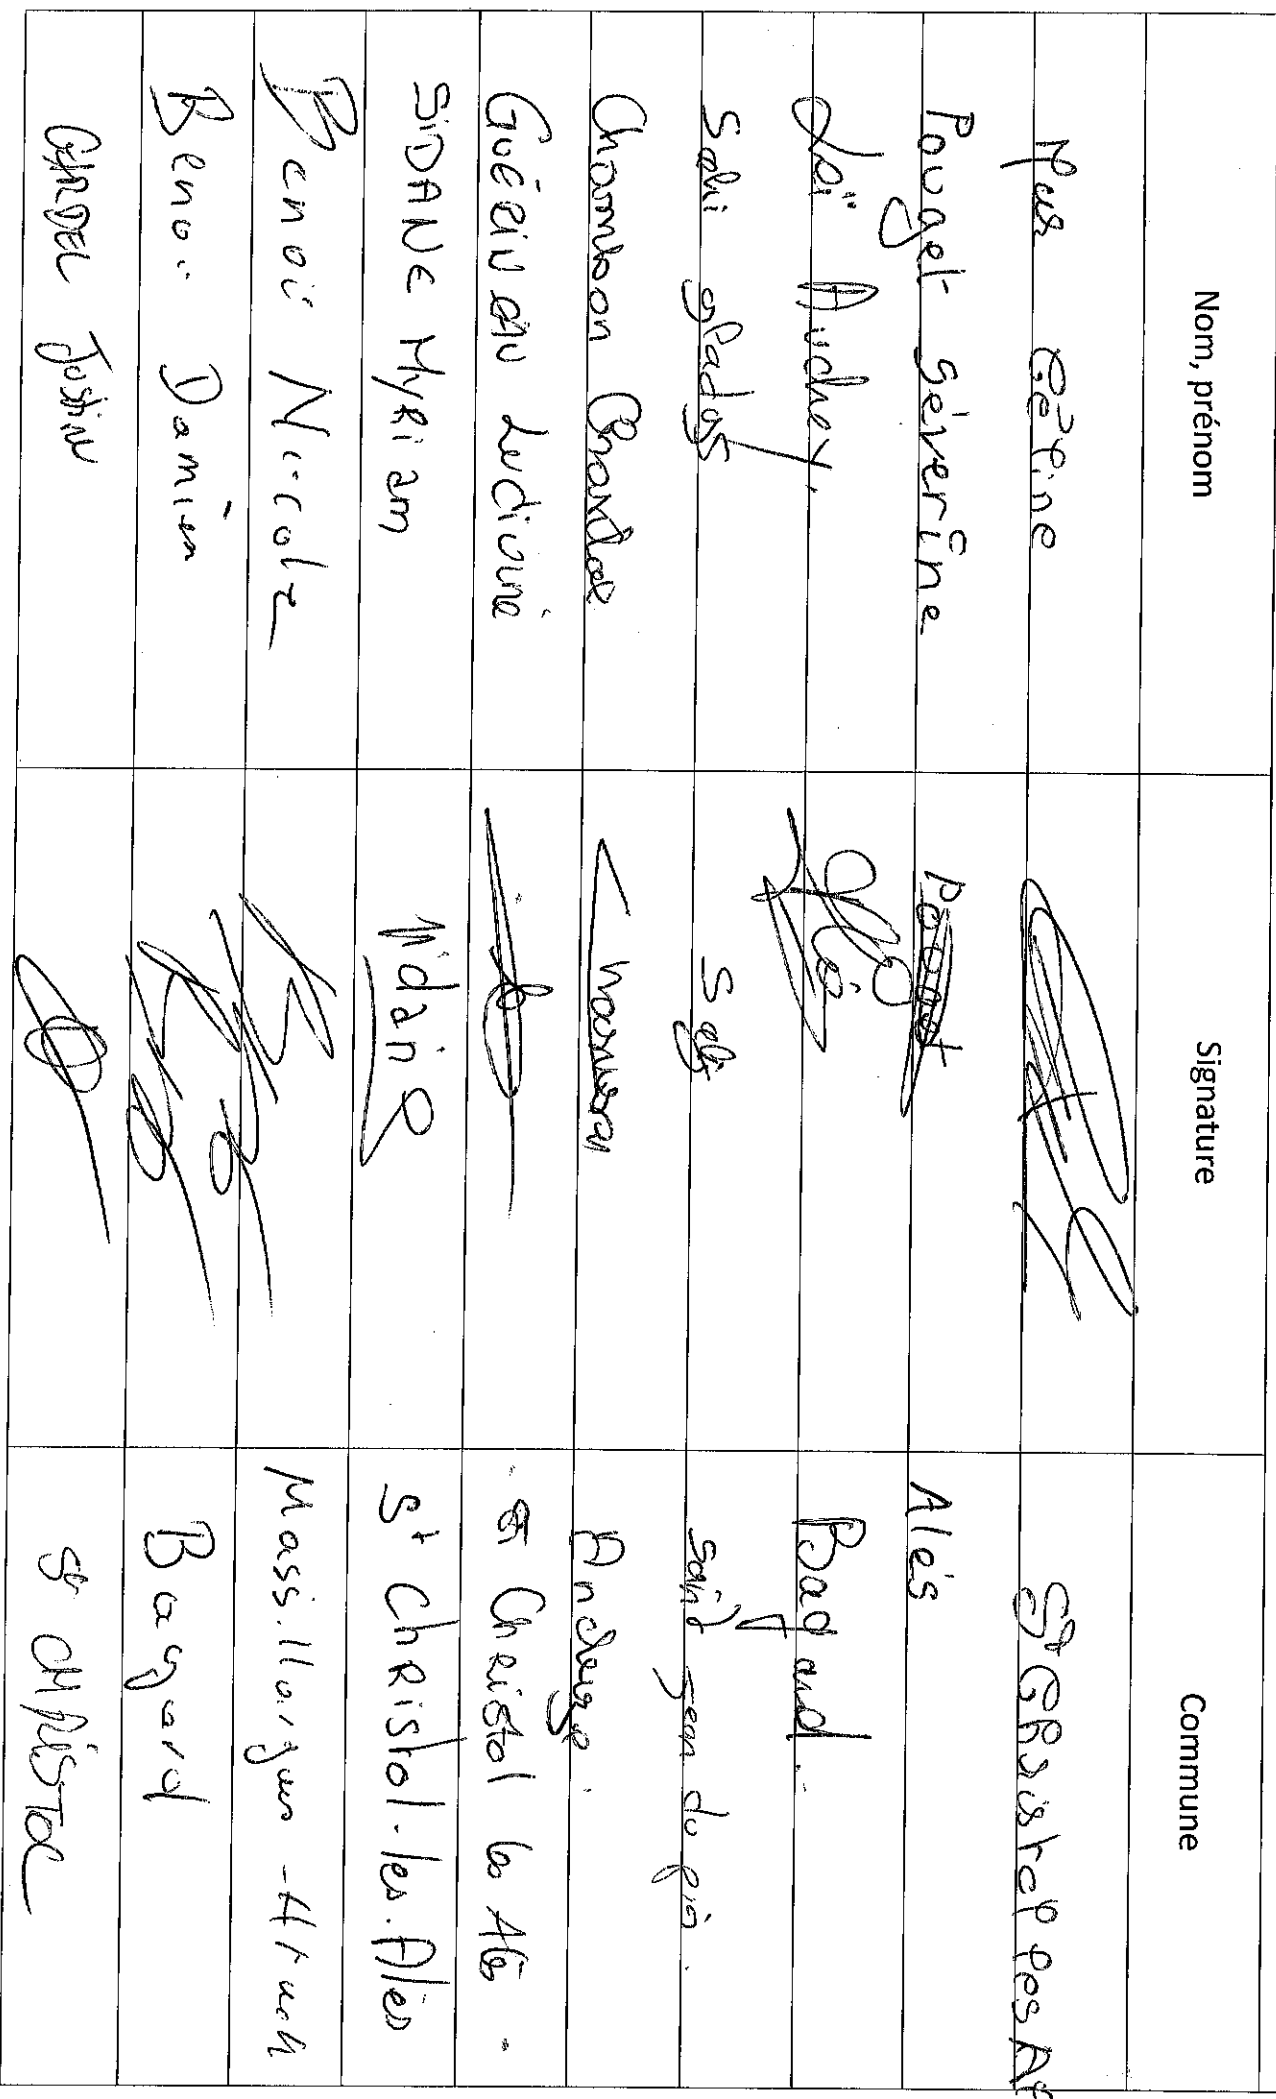 Nom, prénom Signature Commune
Céline St Christol les Al
Pouget Séverine Alès
Loï Audrey. Bagard.
Selii gladys Saint jean du pin.
Chambon Chantal Chambon Anduze.
GUÉRINEAU Ludivine St Christol les Alès.
SiDANE MYRiam St Christol.les.Alès
Benoi Nicole Massillargues-Atuech
Benoi Damien Bagard
GARDEL Justine St CHRISTOL